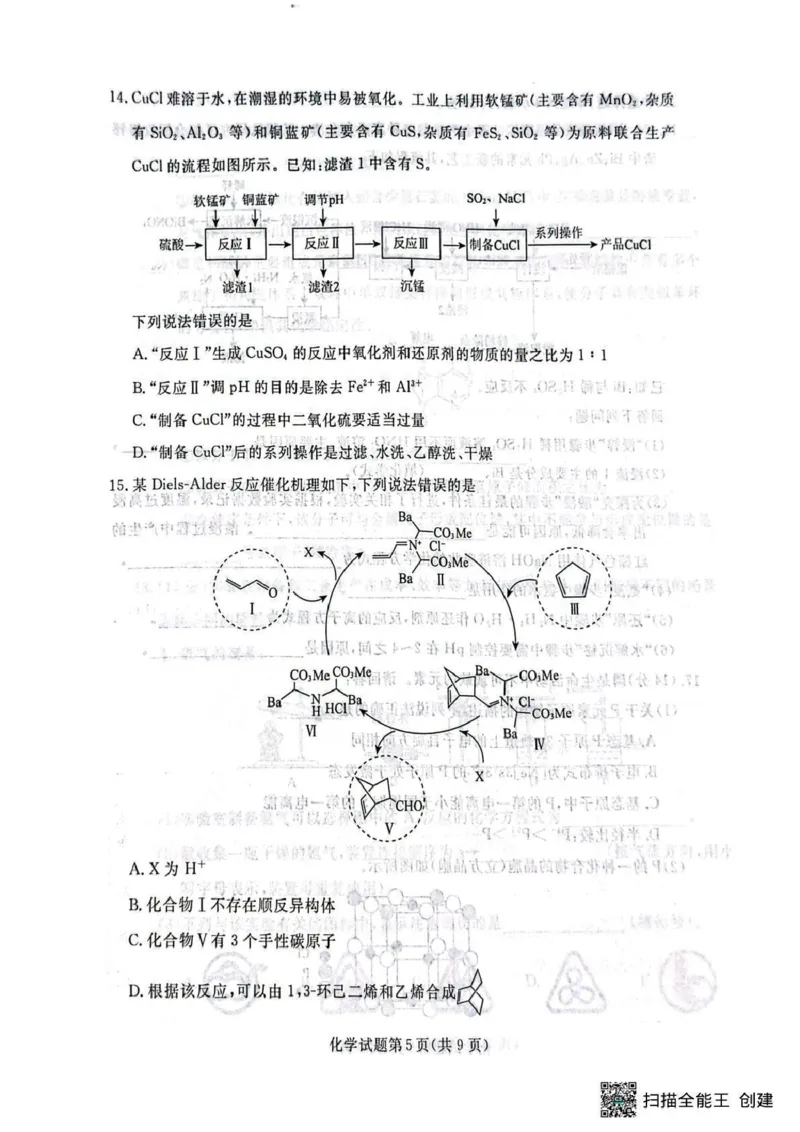 14. CuCl 难溶于水,在潮湿的环境中易被氧化。工业上利用软锰矿(主要含有 MnO₂,杂质
有 SiO₂、Al₂O₃ 等)和铜蓝矿(主要含有 CuS,杂质有 FeS₂、SiO₂ 等)为原料联合生产
CuCl 的流程如图所示。已知:滤渣 1 中含有 S。
软锰矿 铜蓝矿 调节pH SO₂、NaCl
硫酸 反应Ⅰ 反应Ⅱ 反应Ⅲ 制备CuCl 系列操作 产品CuCl
滤渣1 滤渣2 沉锰
下列说法错误的是
A.“反应Ⅰ”生成 CuSO₄ 的反应中氧化剂和还原剂的物质的量之比为 1∶1
B.“反应Ⅱ”调 pH 的目的是除去 Fe²⁺ 和 Al³⁺
C.“制备 CuCl”的过程中二氧化硫要适当过量
D.“制备 CuCl”后的系列操作是过滤、水洗、乙醇洗、干燥
15. 某 Diels-Alder 反应催化机理如下,下列说法错误的是
Ba
CO₃Me
X N⁺ Cl⁻
CO₃Me
O Ba Ⅱ
Ⅰ Ⅲ
CO₃Me CO₃Me Ba CO₃Me
Ba N Ba N⁺ Cl⁻
H HCl CO₃Me
Ⅵ Ba Ⅳ
X
CHO
Ⅴ
A. X 为 H⁺
B. 化合物Ⅰ不存在顺反异构体
C. 化合物Ⅴ有 3 个手性碳原子
D. 根据该反应,可以由 1,3-环己二烯和乙烯合成
化学试题第 5 页(共 9 页)
扫描全能王 创建